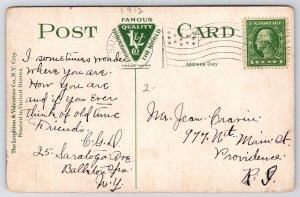 1912
POST CARD
FAMOUS
QUALITY
THE WORLD
TRADE MARK
Address Only
The Leighton & Valentine Co., N.Y. City.
Printed in United States.
I sometimes wonder
where you are.
How you are
and if you ever
think of old time
Friends.
C.G.D.
25- Saratoga Ave
Ballston Spa
N.Y.
Mr. Jean
977 No. Main St
Providence
R.I.